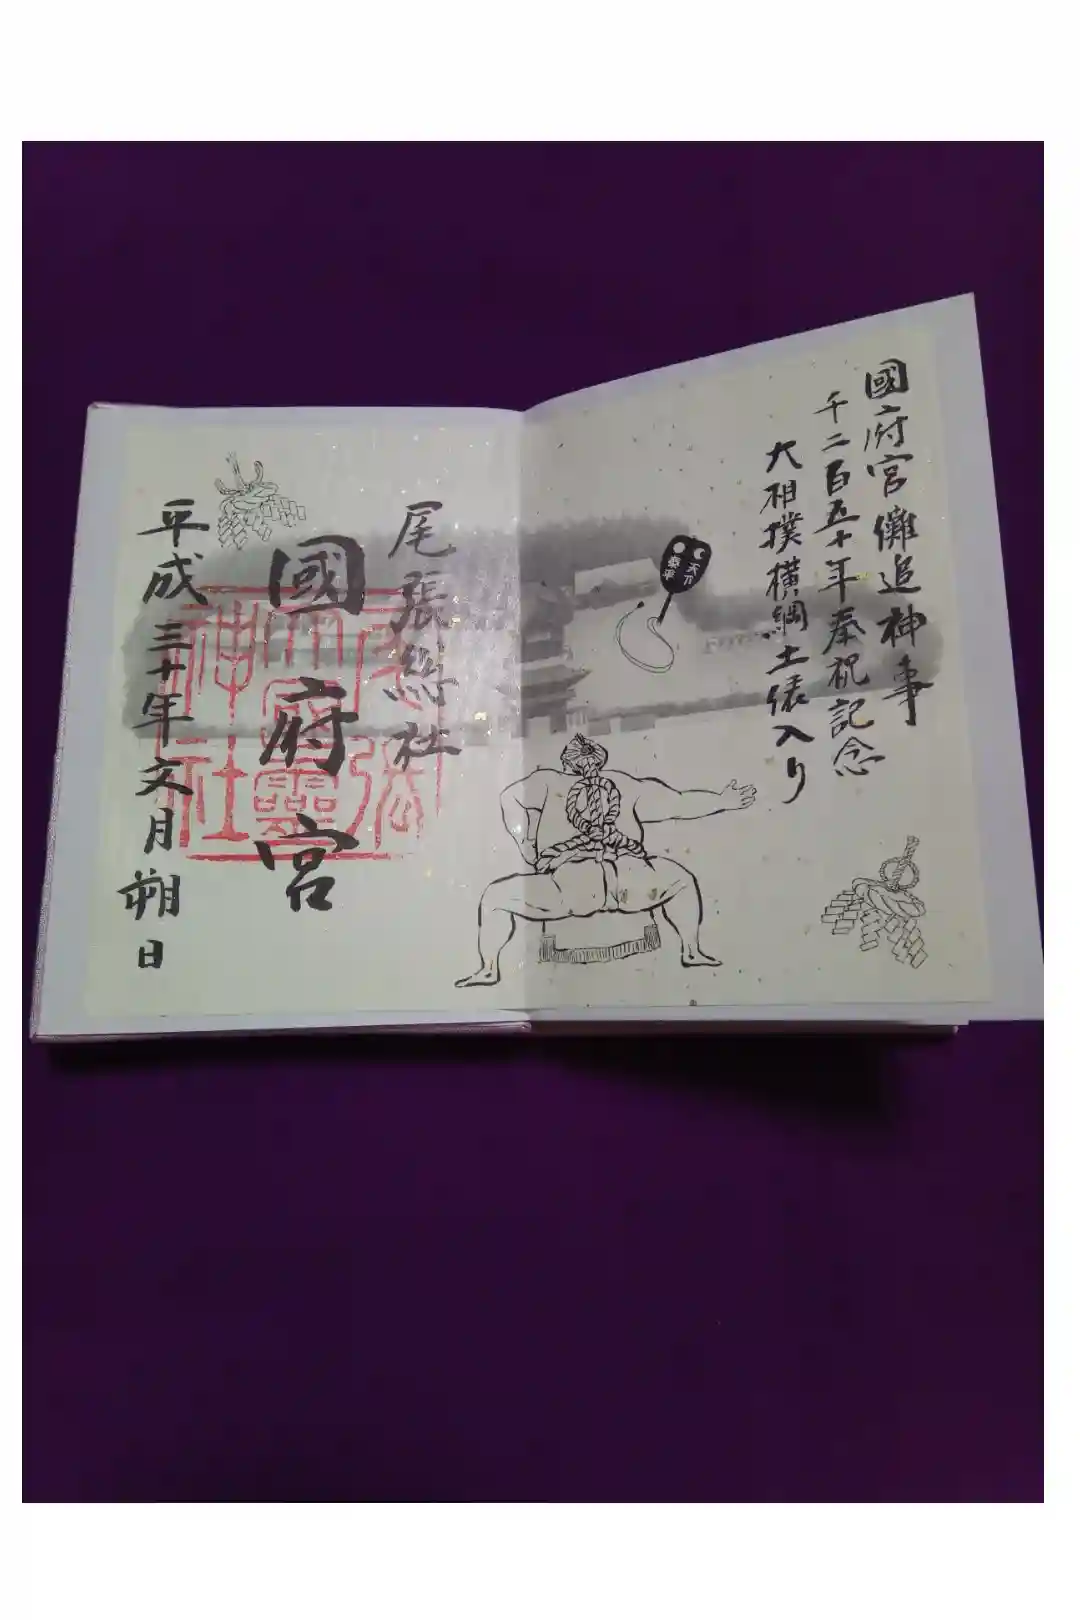 國府宮儺追神事
千二百五十年奉祝記念
大相撲横綱土俵入り
天下
泰平
尾張総社
國府宮
平成三十年文月朔日